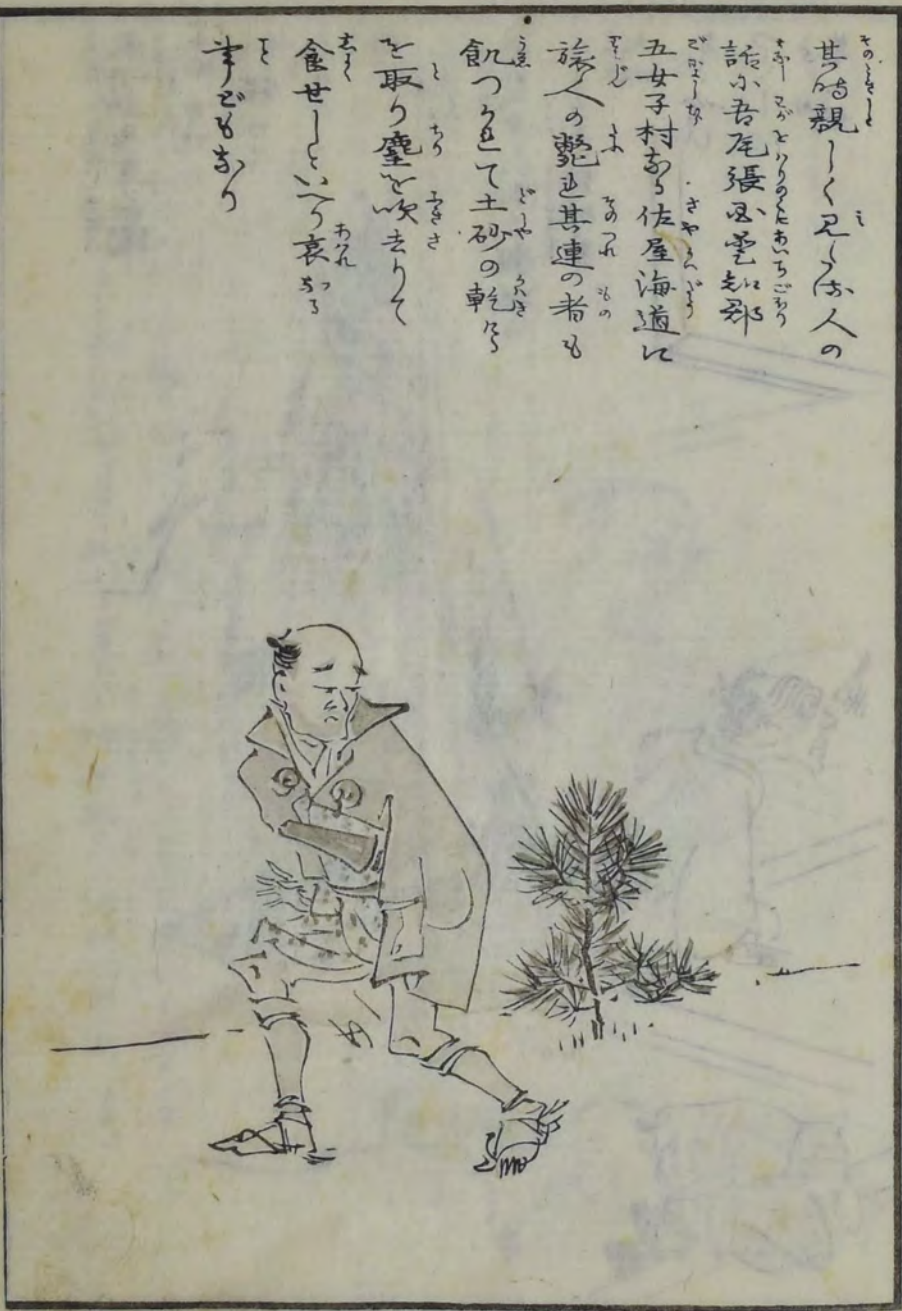 其時親しく見し人の
話に吾尾張国愛知郡
五女子村なる佐屋海道に
旅人の斃れ其連の者も
飢つかれて土砂の乾たる
を取り塵を吹去りて
食せしといへり哀なる
事どもなり